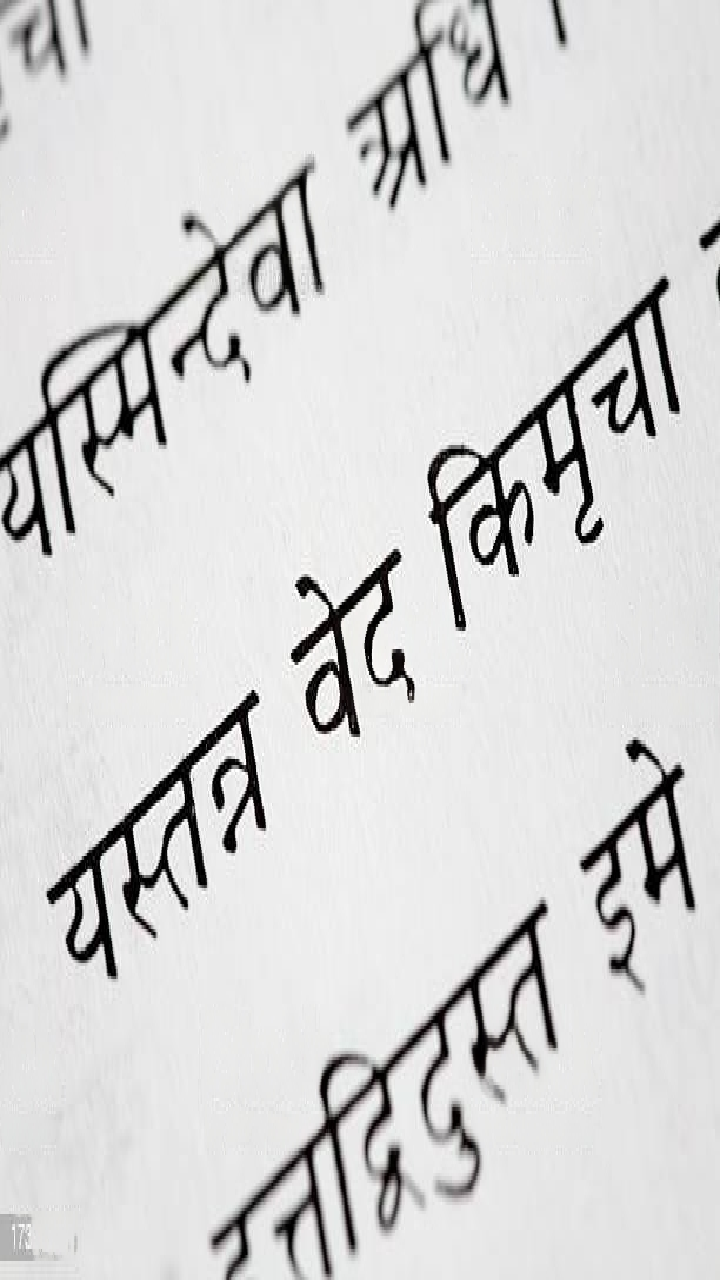 यस्मिन्देवा अधि
यस्तन्न वेद किमृचा
इत्तद्विदुस्त इमे
173